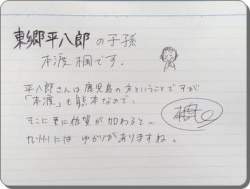 東郷平八郎の子孫
本渡 楓です。
平八郎さんは鹿児島の方ということですが
「本渡」も熊本なので、
そこに更に佐賀が加わると…
九州にはゆかりがありますね。